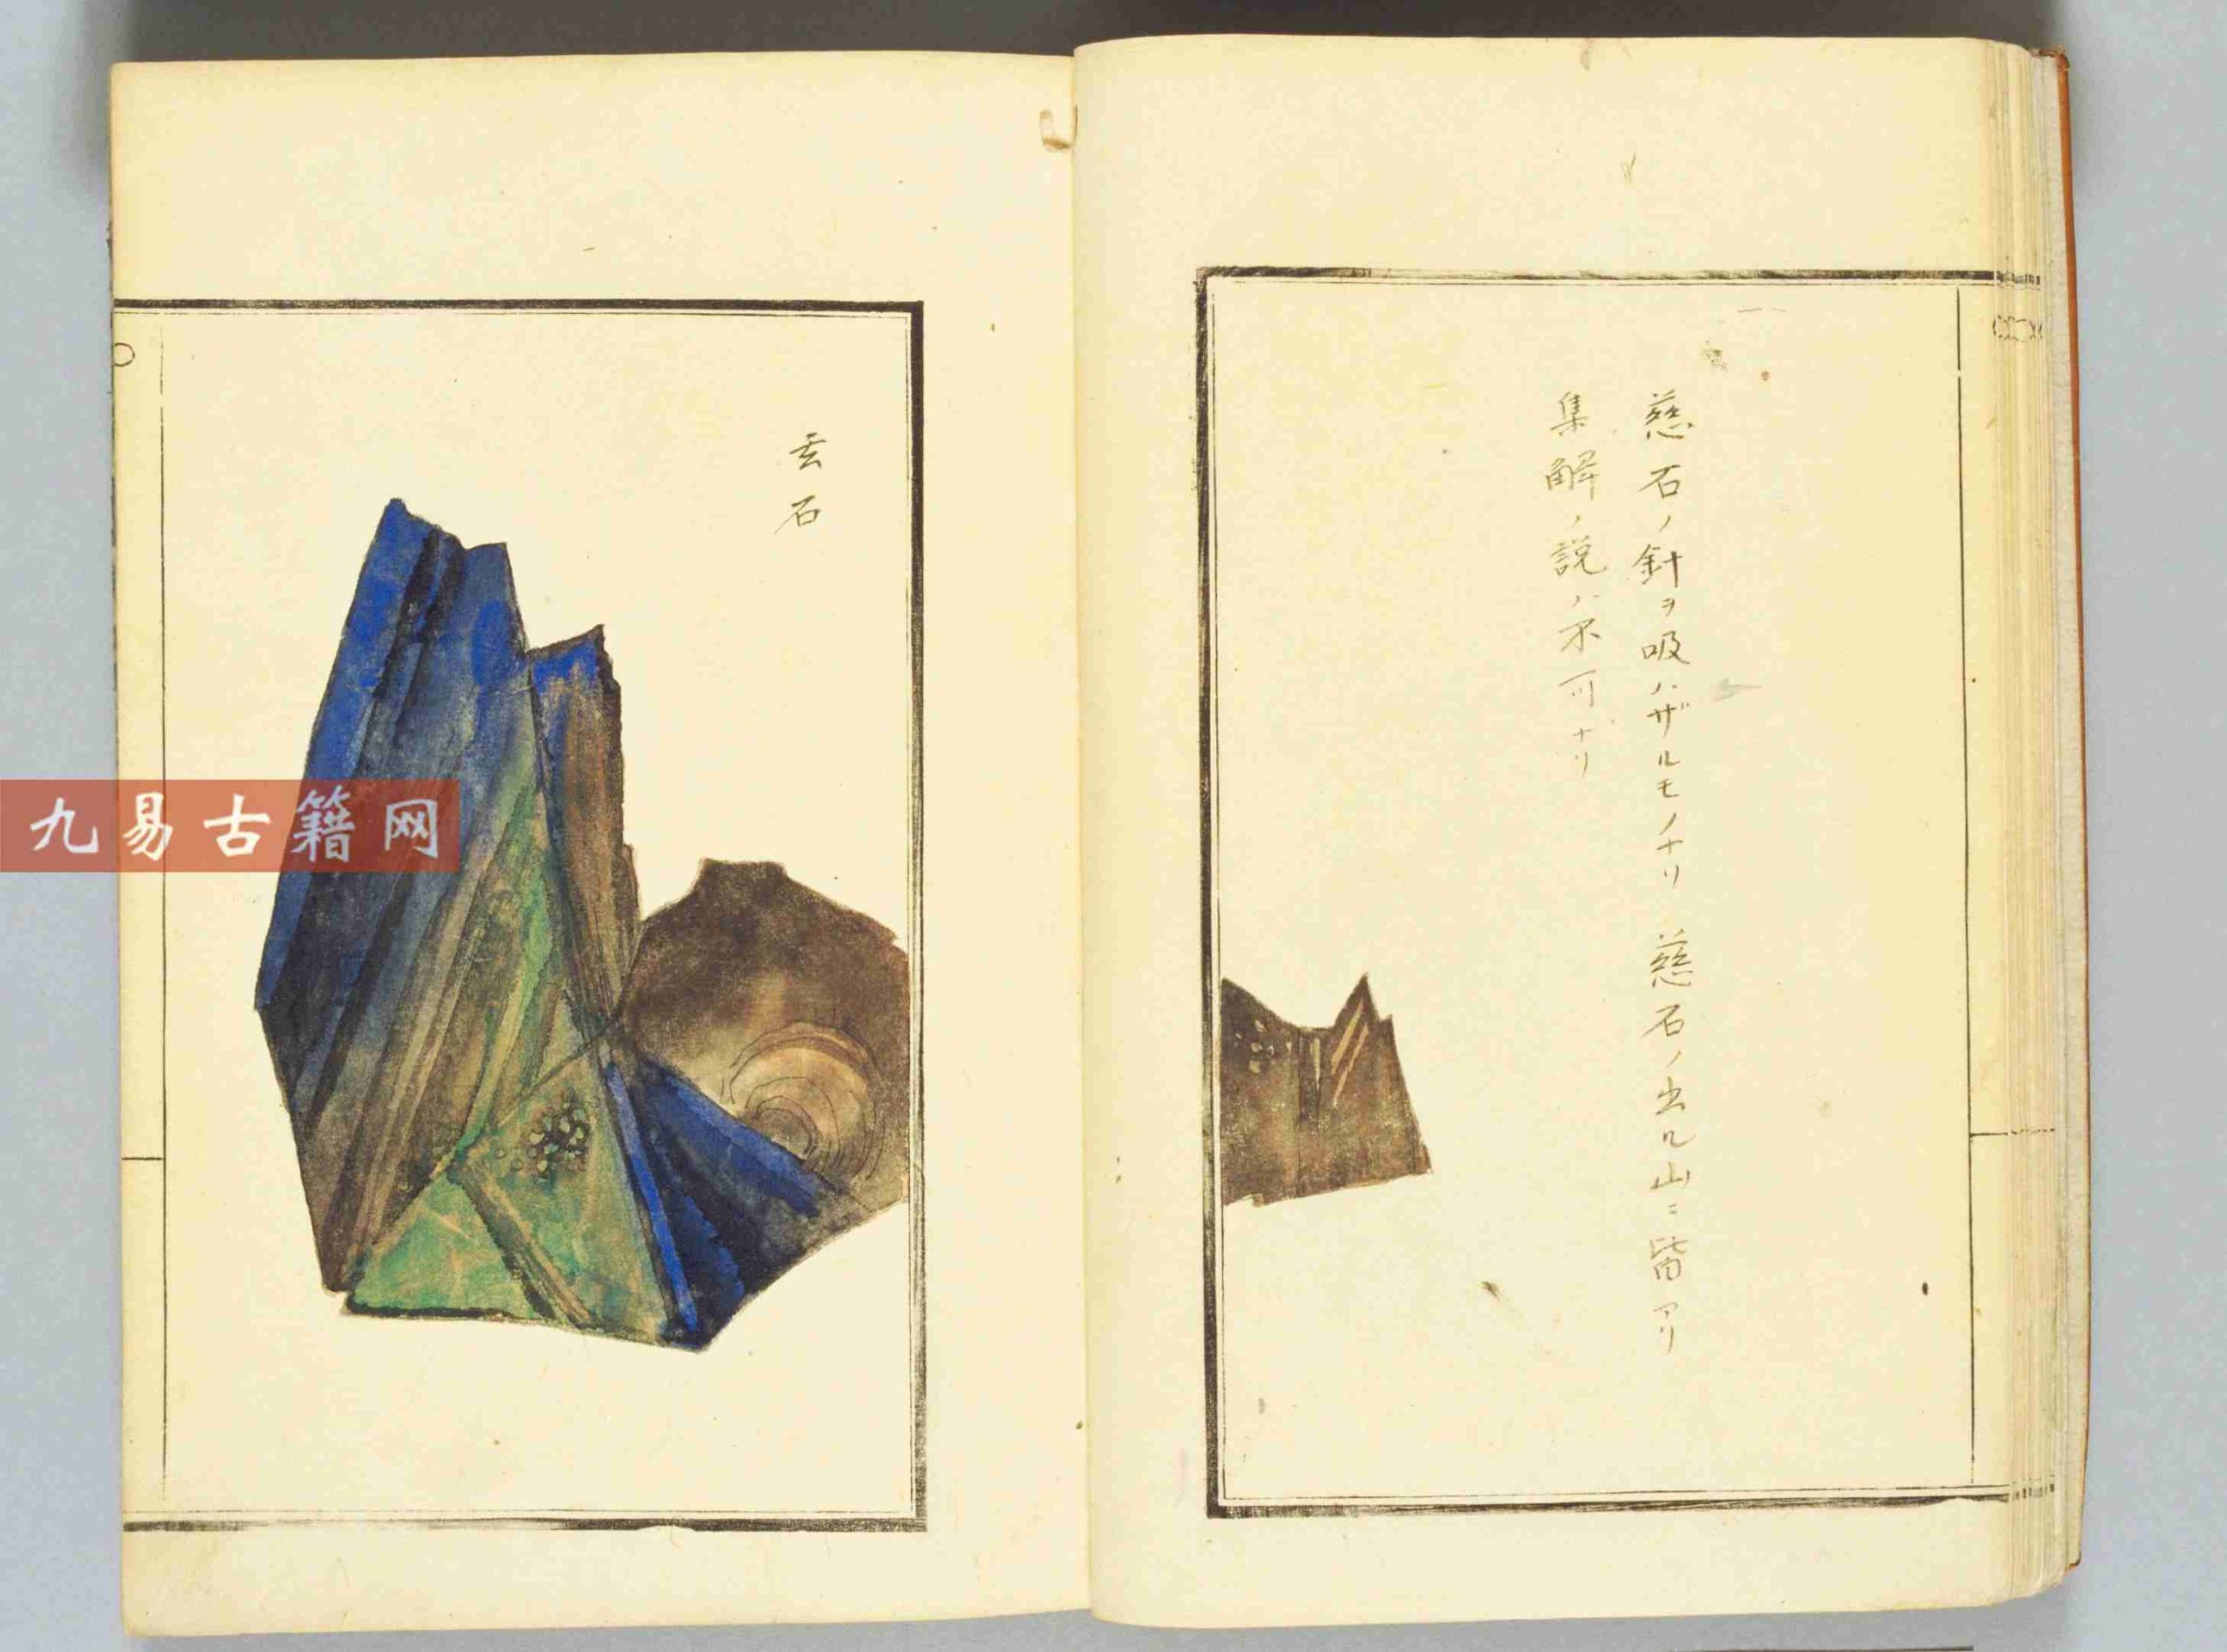 慈石ノ針ヲ吸ハザルモノナリ 慈石ノ出ル山ニ皆アリ
集解ノ説ハ不可ナリ
玄石
九易古籍网